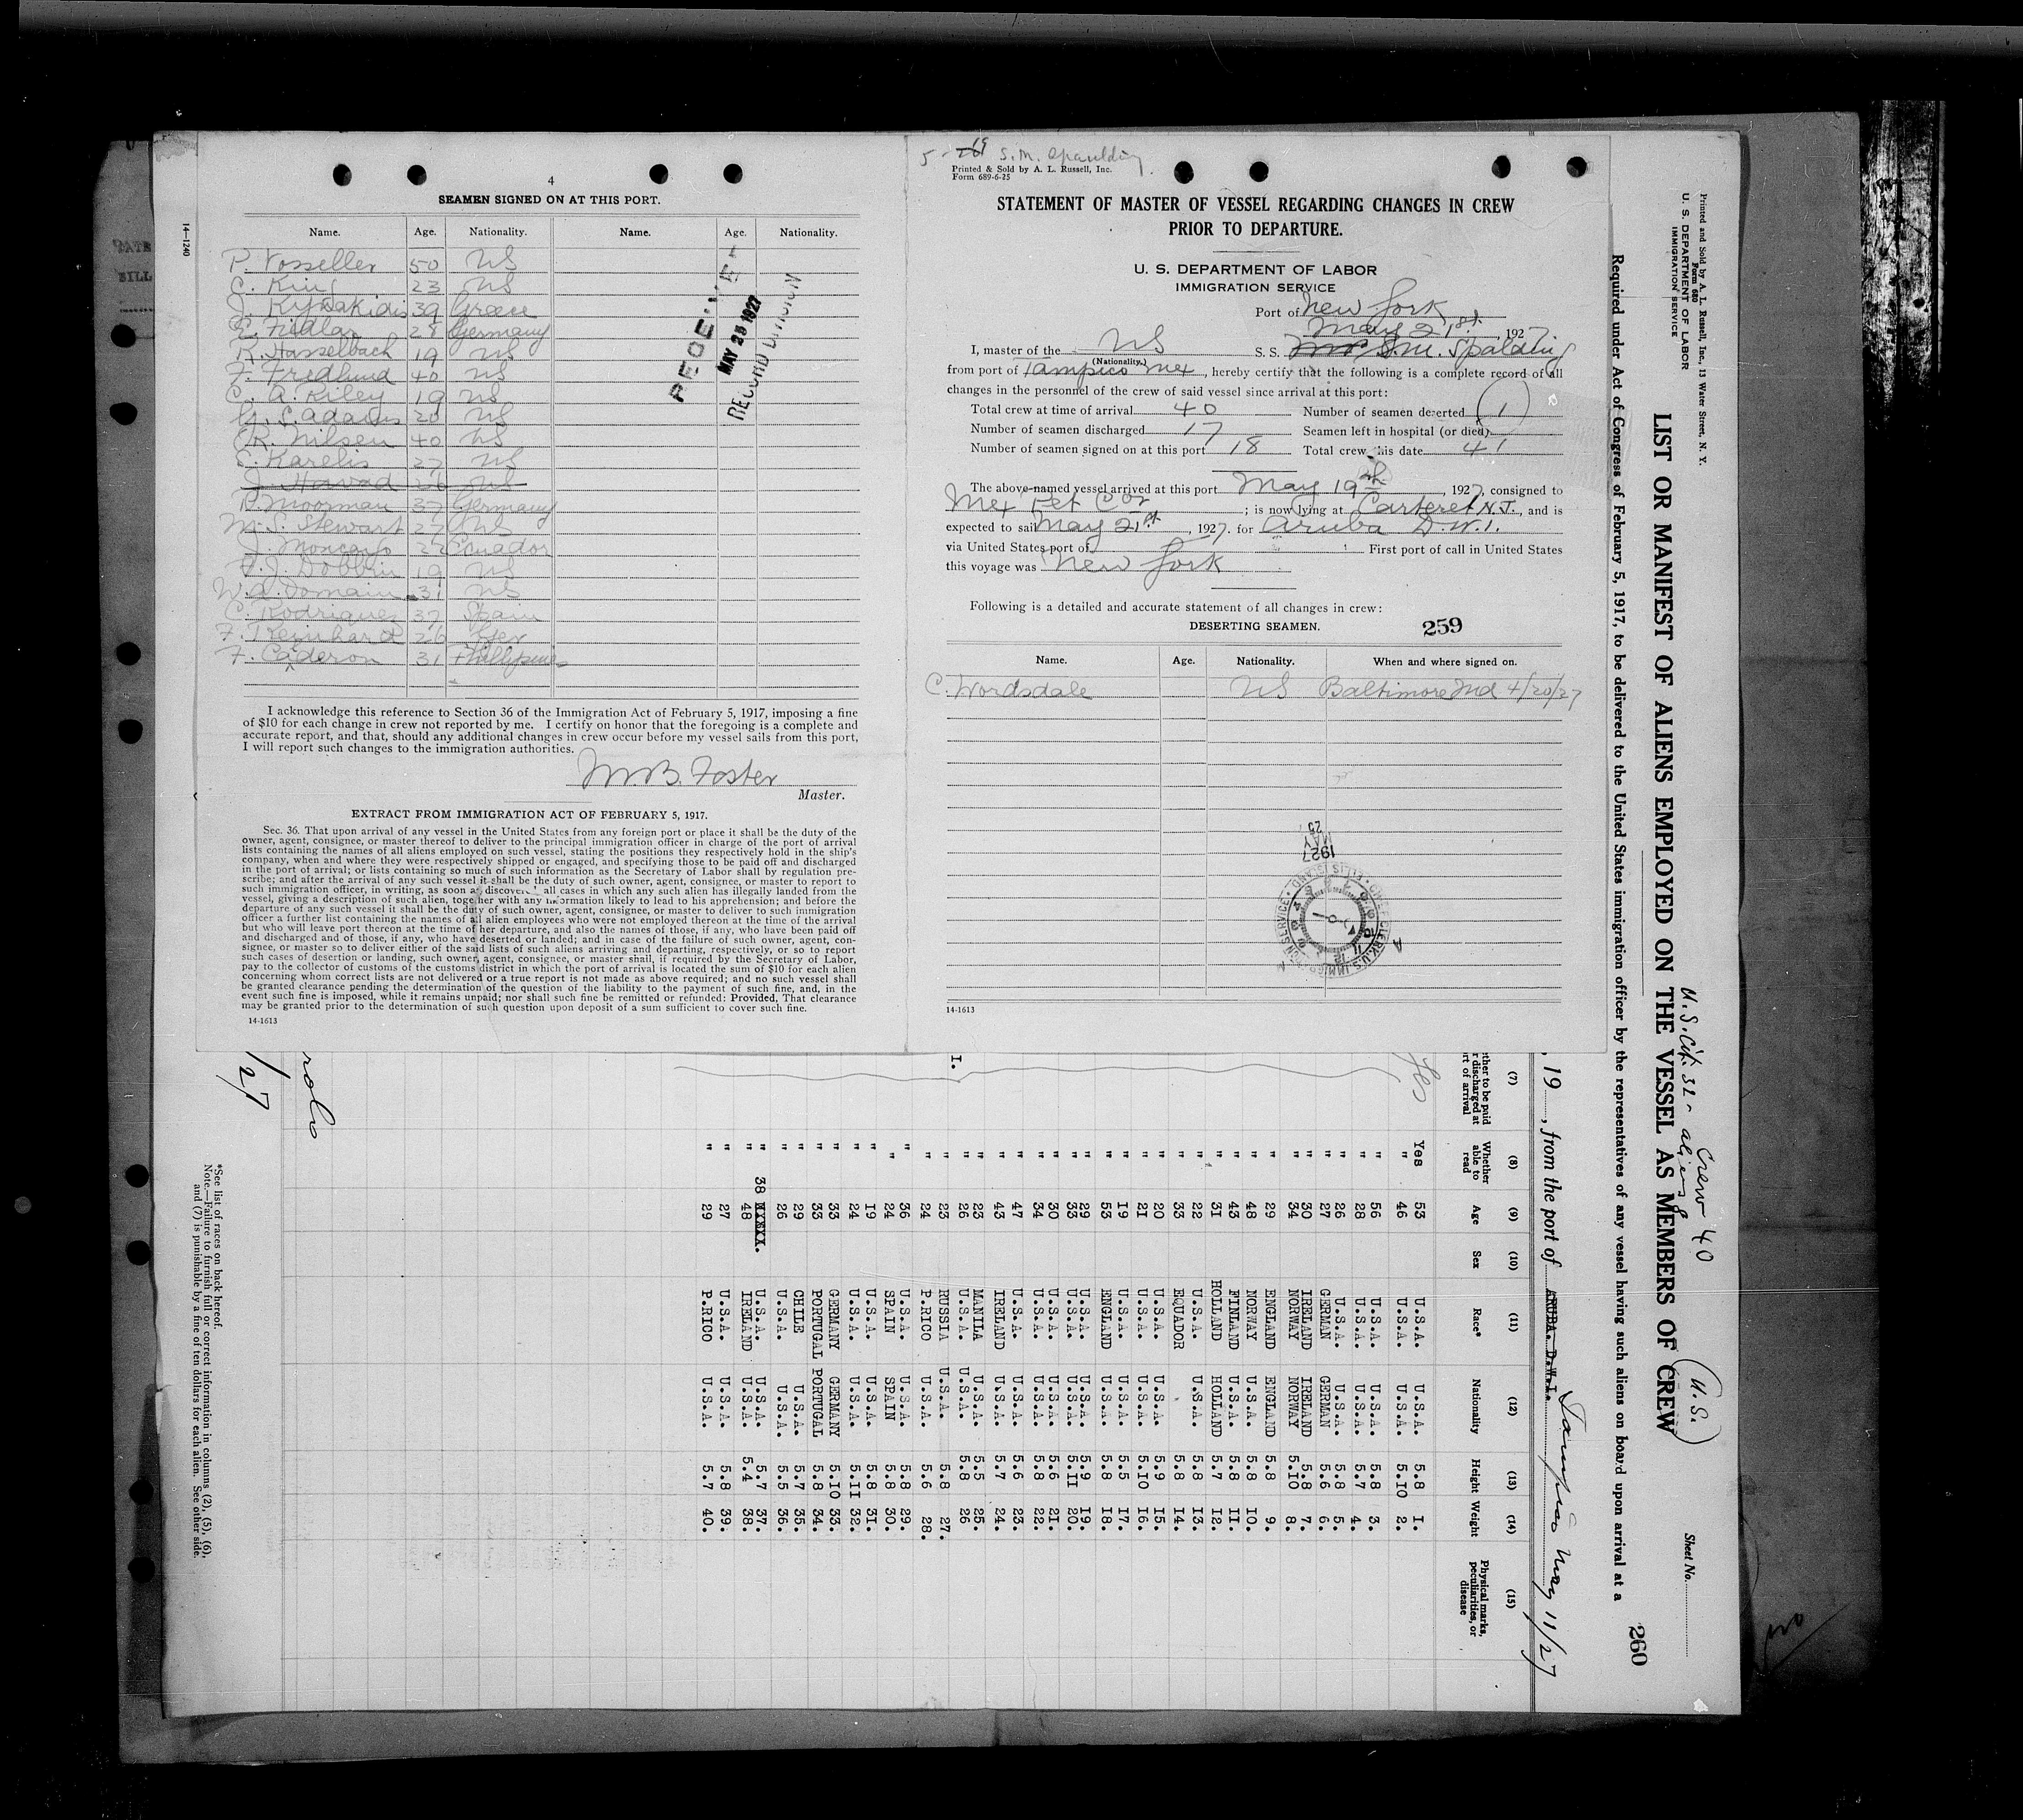 4
SEAMEN SIGNED ON AT THIS PORT.
Name. Age. Nationality. Name. Age. Nationality.
P. Vosseller 50 US
C. King 23 US
J. Kyriakidis 39 Greece
E. Fidlar 28 Germany
R. Hasselbach 19 US
F. Fredlund 40 US
C. A. Riley 19 US
G. S. Adams 20 US
R. Nilsen 40 US
E. Karelis 27 US
J. Howad 26 US
P. Moorman 37 Germany
M. S. Stewart 27 US
J. Moncayo 22 Ecuador
F. J. Dobbin 19 US
W. A. Domain 31 US
C. Rodriquez 37 Spain
F. Reinhardt 26
F. Caderon 31
RECEIVED
MAY 25 1927
RECORD DIVISION
I acknowledge this reference to Section 36 of the Immigration Act of February 5, 1917, imposing a fine
of $10 for each change in crew not reported by me. I certify on honor that the foregoing is a complete and
accurate report, and that, should any additional changes in crew occur before my vessel sails from this port,
I will report such changes to the immigration authorities.
M. B. Foster
Master.
EXTRACT FROM IMMIGRATION ACT OF FEBRUARY 5, 1917.
Sec. 36. That upon arrival of any vessel in the United States from any foreign port or place it shall be the duty of the
owner, agent, consignee, or master thereof to deliver to the principal immigration officer in charge of the port of arrival
lists containing the names of all aliens employed on such vessel, stating the positions they respectively hold in the ship's
company, when and where they were respectively shipped or engaged, and specifying those to be paid off and discharged
in the port of arrival; or lists containing so much of such information as the Secretary of Labor shall by regulation pre-
scribe; and after the arrival of any such vessel it shall be the duty of such owner, agent, consignee, or master to report to
such immigration officer, in writing, as soon as discovered, all cases in which any such alien has illegally landed from the
vessel, giving a description of such alien, together with any information likely to lead to his apprehension; and before the
departure of any such vessel it shall be the duty of such owner, agent, consignee, or master to deliver to such immigration
officer a further list containing the names of all alien employees who were not employed thereon at the time of the arrival
but who will leave port thereon at the time of her departure, and also the names of those, if any, who have been paid off
and discharged and of those, if any, who have deserted or landed; and in case of the failure of such owner, agent, con-
signee, or master so to deliver either of the said lists of such aliens arriving and departing, respectively, or so to report
such cases of desertion or landing, such owner, agent, consignee, or master shall, if required by the Secretary of Labor,
pay to the collector of customs of the customs district in which the port of arrival is located the sum of $10 for each alien
concerning whom correct lists are not delivered or a true report is not made as above required; and no such vessel shall
be granted clearance pending the determination of the question of the liability to the payment of such fine, and, in the
event such fine is imposed, while it remains unpaid; nor shall such fine be remitted or refunded: Provided, That clearance
may be granted prior to the determination of such question upon deposit of a sum sufficient to cover such fine.
14-1613
14-1240
S. M. Spaulding
Printed & Sold by A. L. Russell, Inc.
Form 689-6-25
STATEMENT OF MASTER OF VESSEL REGARDING CHANGES IN CREW
PRIOR TO DEPARTURE.
U. S. DEPARTMENT OF LABOR
IMMIGRATION SERVICE
Port of New York
May 21st, 1927
I, master of the US S. S. S. M. Spalding
(Nationality.)
from port of Tampico Mex, hereby certify that the following is a complete record of all
changes in the personnel of the crew of said vessel since arrival at this port:
Total crew at time of arrival 40 Number of seamen deserted 1
Number of seamen discharged 17 Seamen left in hospital (or died)
Number of seamen signed on at this port 18 Total crew this date 41
The above-named vessel arrived at this port May 19th, 1927, consigned to
Mex Pet Cor; is now lying at Carteret N.J., and is
expected to sail May 21st, 1927. for Aruba D.W.I.
via United States port of First port of call in United States
this voyage was New York
Following is a detailed and accurate statement of all changes in crew:
DESERTING SEAMEN. 259
Name. Age. Nationality. When and where signed on.
C. Wordsdale US Baltimore Md 4/20/27
1927
MAY
25
14-1613
Printed and Sold by A. L. Russell, Inc., 13 Water Street, N. Y.
Form 680
U. S. DEPARTMENT OF LABOR
IMMIGRATION SERVICE
Crew 40
U.S. Cit. 32 - aliens 8
(U.S.)
Sheet No.
LIST OR MANIFEST OF ALIENS EMPLOYED ON THE VESSEL AS MEMBERS OF CREW
260
Required under Act of Congress of February 5, 1917, to be delivered to the United States immigration officer by the representatives of any vessel having such aliens on board upon arrival at a
, 19 , from the port of ARUBA. D.W.I. Tampico May 11/27
(7) (8) (9) (10) (11) (12) (13) (14) (15)
ther to be paid r discharged at rt of arrival
Whether able to read
Age Sex Race* Nationality Height Weight
Physical marks, peculiarities, or disease
Yes
Yes 53 U.S.A. U.S.A. 5.8 1.
" 46 U.S.A. U.S.A. 5.10 2.
" 56 U.S.A. U.S.A. 5.8 3.
" 28 U.S.A. U.S.A. 5.7 4.
" 26 U.S.A. U.S.A. 5.8 5.
" 27 GERMAN GERMAN 5.6 6.
" 30 IRELAND IRELAND 5.8 7.
" 34 NORWAY NORWAY 5.10 8.
" 29 ENGLAND ENGLAND 5.8 9.
" 48 NORWAY U.S.A. 5.8 10.
" 43 FINLAND U.S.A. 5.8 11.
" 31 HOLLAND HOLLAND 5.7 12.
" 22 U.S.A. U.S.A. 5.8 13.
" 33 EQUADOR 5.8 14.
" 20 U.S.A. U.S.A. 5.9 15.
" 21 U.S.A. U.S.A. 5.10 16.
" 19 U.S.A. U.S.A. 5.5 17.
" 53 ENGLAND U.S.A. 5.8 18.
" 29 U.S.A. U.S.A. 5.9 19.
" 33 U.S.A. U.S.A. 5.11 20.
" 30 U.S.A. U.S.A. 5.6 21.
" 34 U.S.A. U.S.A. 5.8 22.
" 47 U.S.A. U.S.A. 5.6 23.
" 43 IRELAND U.S.A. 5.7 24.
" 23 MANILA U.S.A. 5.5 25.
" 26 U.S.A. U.S.A. 5.8 26
" 23 RUSSIA U.S.A. 5.8 27.
" 24 P.RICO U.S.A. 5.6 28.
" 36 U.S.A. U.S.A. 5.8 29.
" 24 SPAIN SPAIN 5.8 30.
" 19 U.S.A. U.S.A. 5.8 31.
" 24 U.S.A. U.S.A. 5.11 32.
" 33 GERMANY GERMANY 5.10 33.
" 33 PORTUGAL PORTUGAL 5.8 34.
" 29 CHILE U.S.A. 5.7 35.
" 26 U.S.A. U.S.A. 5.5 36.
" 38 U.S.A. U.S.A. 5.7 37.
" 48 IRELAND U.S.A. 5.4 38.
" 27 U.S.A. U.S.A. 5.8 39.
" 29 P.RICO U.S.A. 5.7 40.
I.
1/27
*See list of races on back hereof.
Note.—Failure to furnish full or correct information in columns (2), (5), (6),
and (7) is punishable by a fine of ten dollars for each alien. See other side.